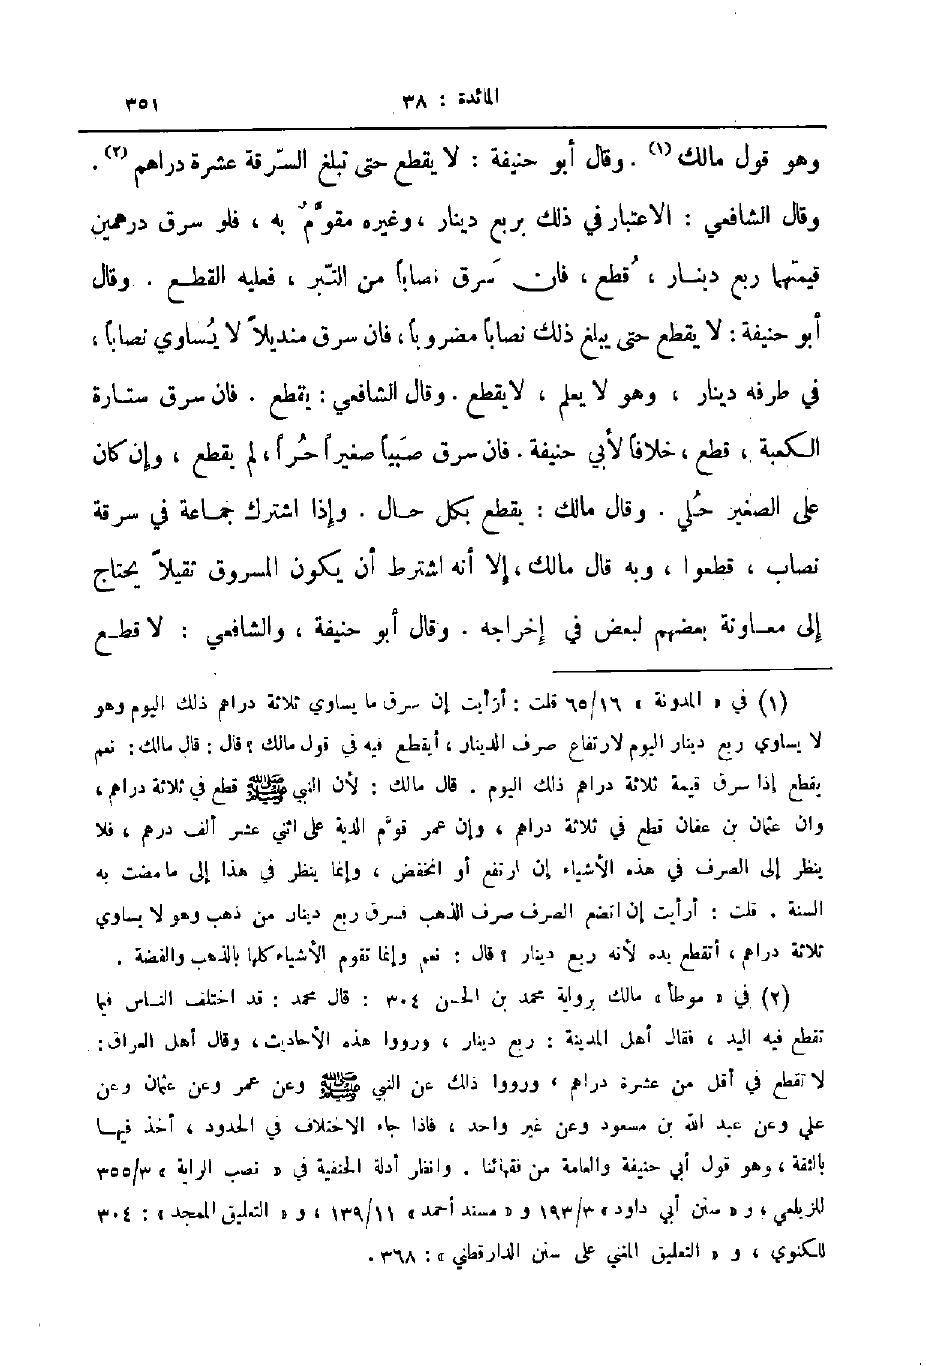 المائدة : ٣٨ ٣٥١
وهو قول مالك (١) . وقال أبو حنيفة : لا يقطع حتى تبلغ السّرقة عشرة دراهم (٢) .
وقال الشافعي : الاعتبار في ذلك بربع دينار ، وغيره مقوَّمٌ به ، فلو سرق درهمين
قيمتها ربع دينـار ، قُطع ، فان سَرق نصاباً من التّبر ، فعليه القطـع . وقال
أبو حنيفة : لا يقطع حتى يبلغ ذلك نصاباً مضروباً ، فان سرق منديلاً لا يُساوي نصاباً ،
في طرفه دينار ، وهو لا يعلم ، لايقطع . وقال الشافعي : يقطع . فان سرق ستـارة
الكعبة ، قطع ، خلافاً لأبي حنيفة . فان سرق صَبياً صغيراً حُراً ، لم يقطع ، وإن كان
على الصغير حُلي . وقال مالك : يقطع بكل حـال . وإذا اشترك جمـاعة في سرقة
نصاب ، قطعوا ، وبه قال مالك ، إلا أنه اشترط أن يكون المسروق ثقيلاً يحتاج
إلى معـاونة بعضهم لبعض في إخراجه . وقال أبو حنيفة ، والشافعي : لا قطـع
(١) في « المدونة » ٦٥/١٦ قلت : أرأيت إن سرق ما يساوي ثلاثة دراهم ذلك اليوم وهو
لا يساوي ربع دينار اليوم لارتفاع صرف الدينار ، أيقطع فيه في قول مالك ؟ قال : قال مالك : نعم
يقطع إذا سرق قيمة ثلاثة دراهم ذلك اليوم . قال مالك : لأن النبي ﷺ قطع في ثلاثة دراهم ،
وان عثمان بن عفان قطع في ثلاثة دراهم ، وإن عمر قوَّم الدية على اثني عشر ألف درهم ، فلا
ينظر إلى الصرف في هذه الأشياء إن ارتفع أو انخفض ، وإنما ينظر في هذا إلى ما مضت به
السنة . قلت : أرأيت إن اتضع الصرف صرف الذهب فسرق ربع دينار من ذهب وهو لا يساوي
ثلاثة دراهم ، أتقطع يده لأنه ربع دينار ؟ قال : نعم وإنما تقوم الأشياء كلها بالذهب والفضة .
(٢) في « موطأ » مالك برواية محمد بن الحسن ٣٠٤ : قال محمد : قد اختلف النـاس فيما
تقطع فيه اليد ، فقال أهل المدينة : ربع دينار ، ورووا هذه الأحاديث ، وقال أهل العراق :
لا تقطع في أقل من عشرة دراهم ، ورووا ذلك عن النبي ﷺ وعن عمر وعن عثمان وعن
علي وعن عبد الله بن مسعود وعن غير واحد ، فاذا جاء الاختلاف في الحدود ، أخذ فيهـا
بالثقة ، وهو قول أبي حنيفة والعامة من فقهائنا . وانظر أدلة الحنفية في « نصب الراية » ٣٥٥/٣
للزيلعي ، و « سنن أبي داود » ١٩٣/٣ و « مسند أحمد » ١٣٩/١١ ، و « التعليق الممجد » : ٣٠٤
للكنوي ، و « التعليق المغني على سنن الدارقطني » : ٣٦٨ .